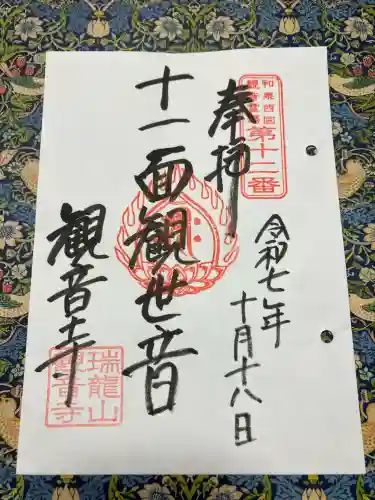 奉拝
和泉西国
観音霊場
第十二番
令和七年
十月十八日
十一面観世音
観音寺
瑞龍山
観音寺